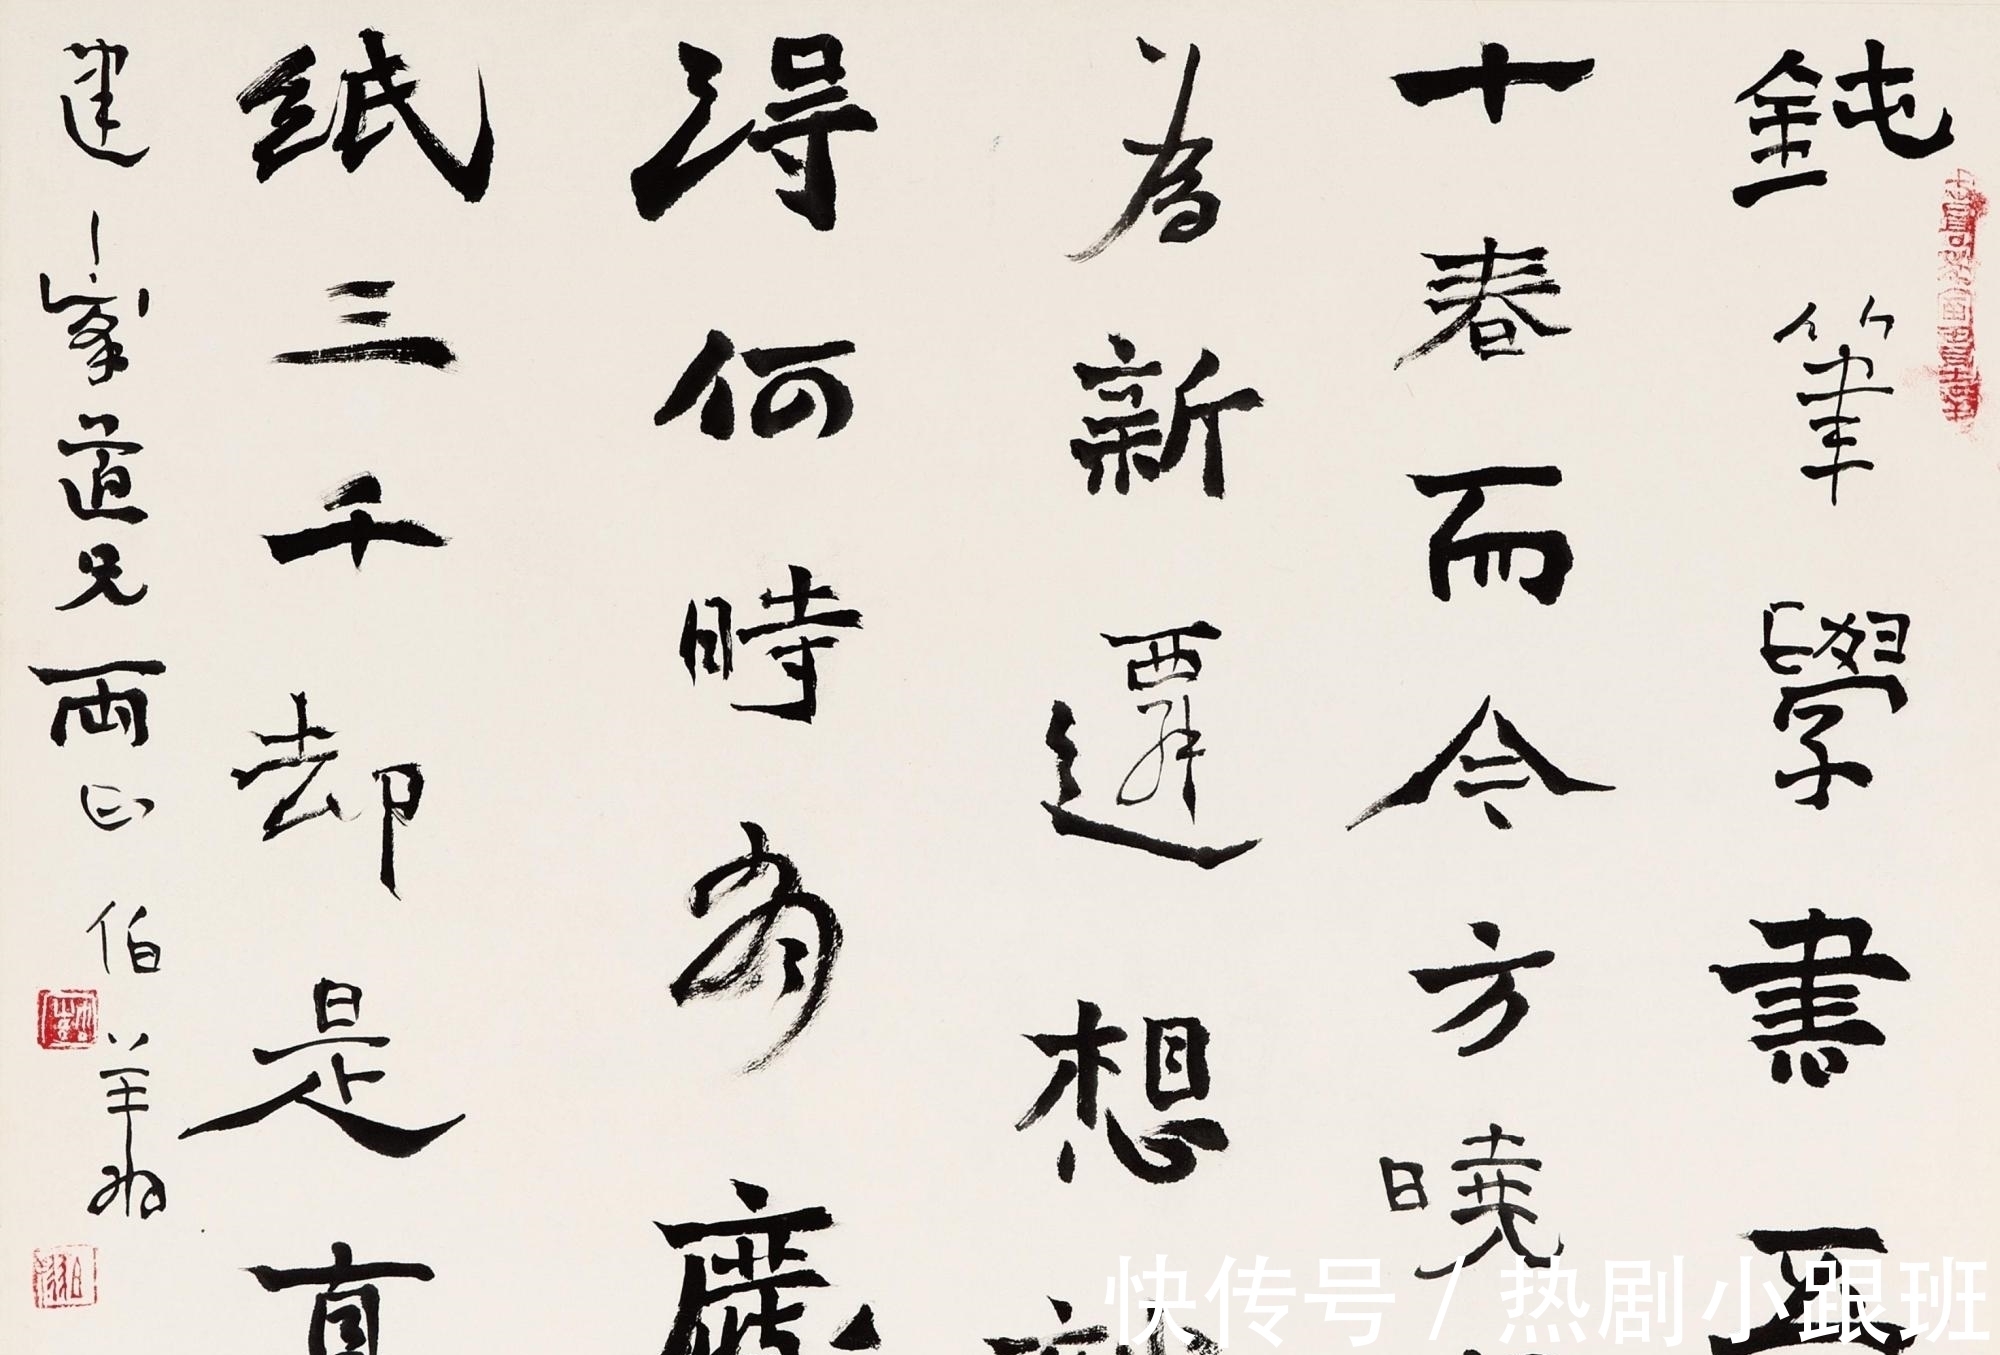 鈍筆學書五
十春而今方曉
為新遷想
得何時多廢
紙三千却是真
建峯道兄兩正
伯羊翔
快传号/热剧小跟班